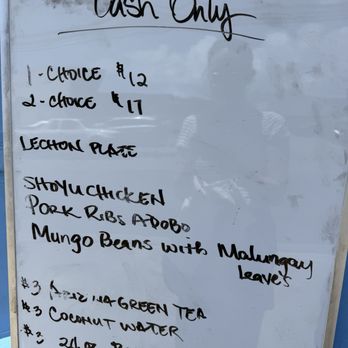 Cash Only
1-CHOICE $12
2-CHOICE $17
LECHON PLATE
SHOYU CHICKEN
PORK RIBS ADOBO
MUNGO BEANS WITH Malungay
leaves
$3 ARIZONA GREEN TEA
$3 COCONUT WATER
$3 24oz